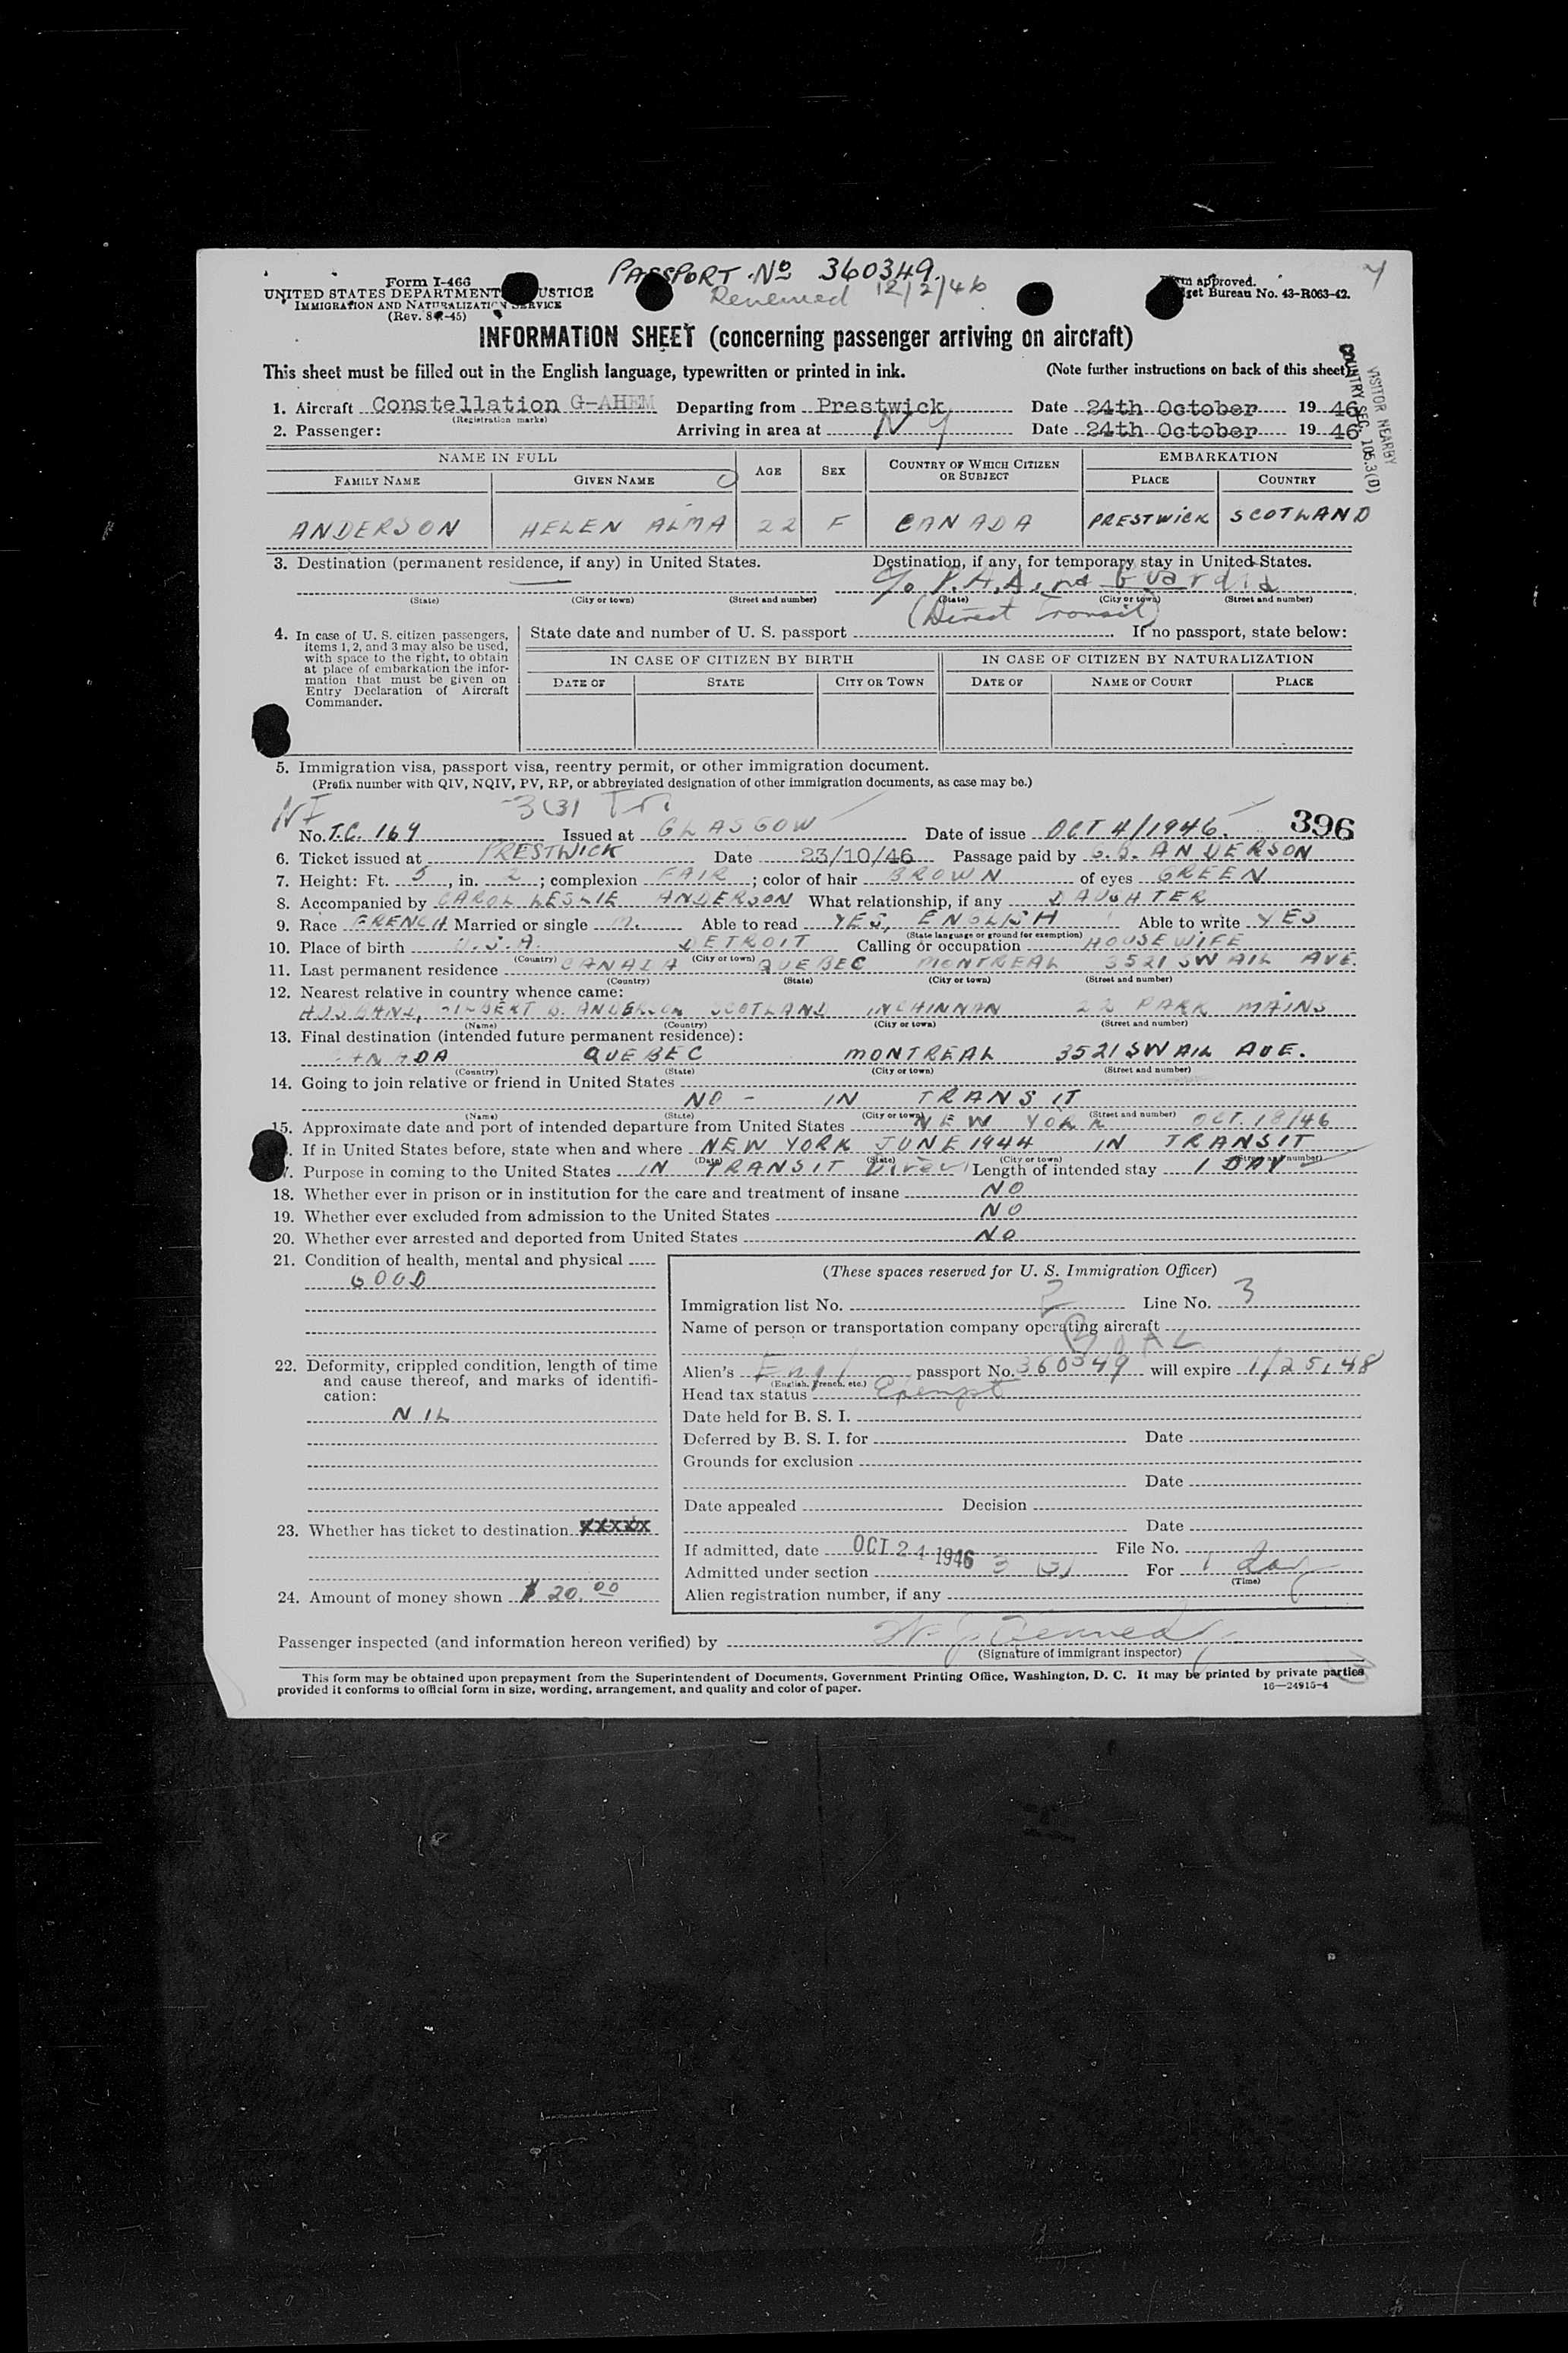 PASSPORT No 360349.
Renewed 12/2/46
Form I-466
UNITED STATES DEPARTMENT JUSTICE
IMMIGRATION AND NATURALIZATION SERVICE
(Rev. 8- -45)
Form approved.
Budget Bureau No. 43-R063-42.
INFORMATION SHEET (concerning passenger arriving on aircraft)
This sheet must be filled out in the English language, typewritten or printed in ink. (Note further instructions on back of this sheet)
COUNTRY SEC. 105.3(D)
VISITOR NEARBY
1. Aircraft Constellation G-AHEM Departing from Prestwick Date 24th October 19 46
(Registration marks)
2. Passenger: Arriving in area at N Y Date 24th October 19 46
NAME IN FULL AGE SEX COUNTRY OF WHICH CITIZEN OR SUBJECT EMBARKATION
FAMILY NAME GIVEN NAME PLACE COUNTRY
ANDERSON HELEN ALMA 22 F CANADA PRESTWICK SCOTLAND
3. Destination (permanent residence, if any) in United States. Destination, if any, for temporary stay in United States.
c/o P.A.A. Guardia
(State) (City or town) (Street and number) (State) (City or town) (Street and number)
(Direct Transit)
4. In case of U. S. citizen passengers, items 1, 2, and 3 may also be used, with space to the right, to obtain at place of embarkation the information that must be given on Entry Declaration of Aircraft Commander.
State date and number of U. S. passport If no passport, state below:
IN CASE OF CITIZEN BY BIRTH IN CASE OF CITIZEN BY NATURALIZATION
DATE OF STATE CITY OR TOWN DATE OF NAME OF COURT PLACE
5. Immigration visa, passport visa, reentry permit, or other immigration document.
(Prefix number with QIV, NQIV, PV, RP, or abbreviated designation of other immigration documents, as case may be.)
NI 3(3) Tr.
No. T.C. 169 Issued at GLASGOW Date of issue OCT 4/1946. 396
6. Ticket issued at PRESTWICK Date 23/10/46 Passage paid by G.B. ANDERSON
7. Height: Ft. 5, in. 2; complexion FAIR; color of hair BROWN of eyes GREEN
8. Accompanied by CAROL LESLIE ANDERSON What relationship, if any DAUGHTER
9. Race FRENCH Married or single M. Able to read YES, ENGLISH Able to write YES
(State language or ground for exemption)
10. Place of birth U.S.A. DETROIT Calling or occupation HOUSEWIFE
(Country) (City or town)
11. Last permanent residence CANADA QUEBEC MONTREAL 3521 SWAIL AVE.
(Country) (State) (City or town) (Street and number)
12. Nearest relative in country whence came:
HUSBAND, GILBERT B. ANDERSON SCOTLAND INCHINNAN 22 PARK MAINS
(Name) (Country) (City or town) (Street and number)
13. Final destination (intended future permanent residence):
CANADA QUEBEC MONTREAL 3521 SWAIL AVE.
(Country) (State) (City or town) (Street and number)
14. Going to join relative or friend in United States
NO - IN TRANSIT
(Name) (State) (City or town) (Street and number)
15. Approximate date and port of intended departure from United States NEW YORK OCT. 18/46
If in United States before, state when and where NEW YORK JUNE 1944 IN TRANSIT
(Date) (State) (City or town) (Street and number)
17. Purpose in coming to the United States IN TRANSIT Direct Length of intended stay 1 DAY
18. Whether ever in prison or in institution for the care and treatment of insane NO
19. Whether ever excluded from admission to the United States NO
20. Whether ever arrested and deported from United States NO
21. Condition of health, mental and physical
GOOD
22. Deformity, crippled condition, length of time and cause thereof, and marks of identification:
NIL
23. Whether has ticket to destination xxxxx
24. Amount of money shown $ 20.00
(These spaces reserved for U. S. Immigration Officer)
Immigration list No. 2 Line No. 3
Name of person or transportation company operating aircraft
Alien's Engl passport No. 360349 will expire 1/25/48
(English, French, etc.)
Head tax status Exempt
Date held for B. S. I.
Deferred by B. S. I. for Date
Grounds for exclusion
Date
Date appealed Decision
Date
If admitted, date OCT 24 1946 File No.
Admitted under section 3 (3) For 1 day
(Time)
Alien registration number, if any
Passenger inspected (and information hereon verified) by
(Signature of immigrant inspector)
This form may be obtained upon prepayment from the Superintendent of Documents, Government Printing Office, Washington, D. C. It may be printed by private parties
provided it conforms to official form in size, wording, arrangement, and quality and color of paper. 16—24915-4